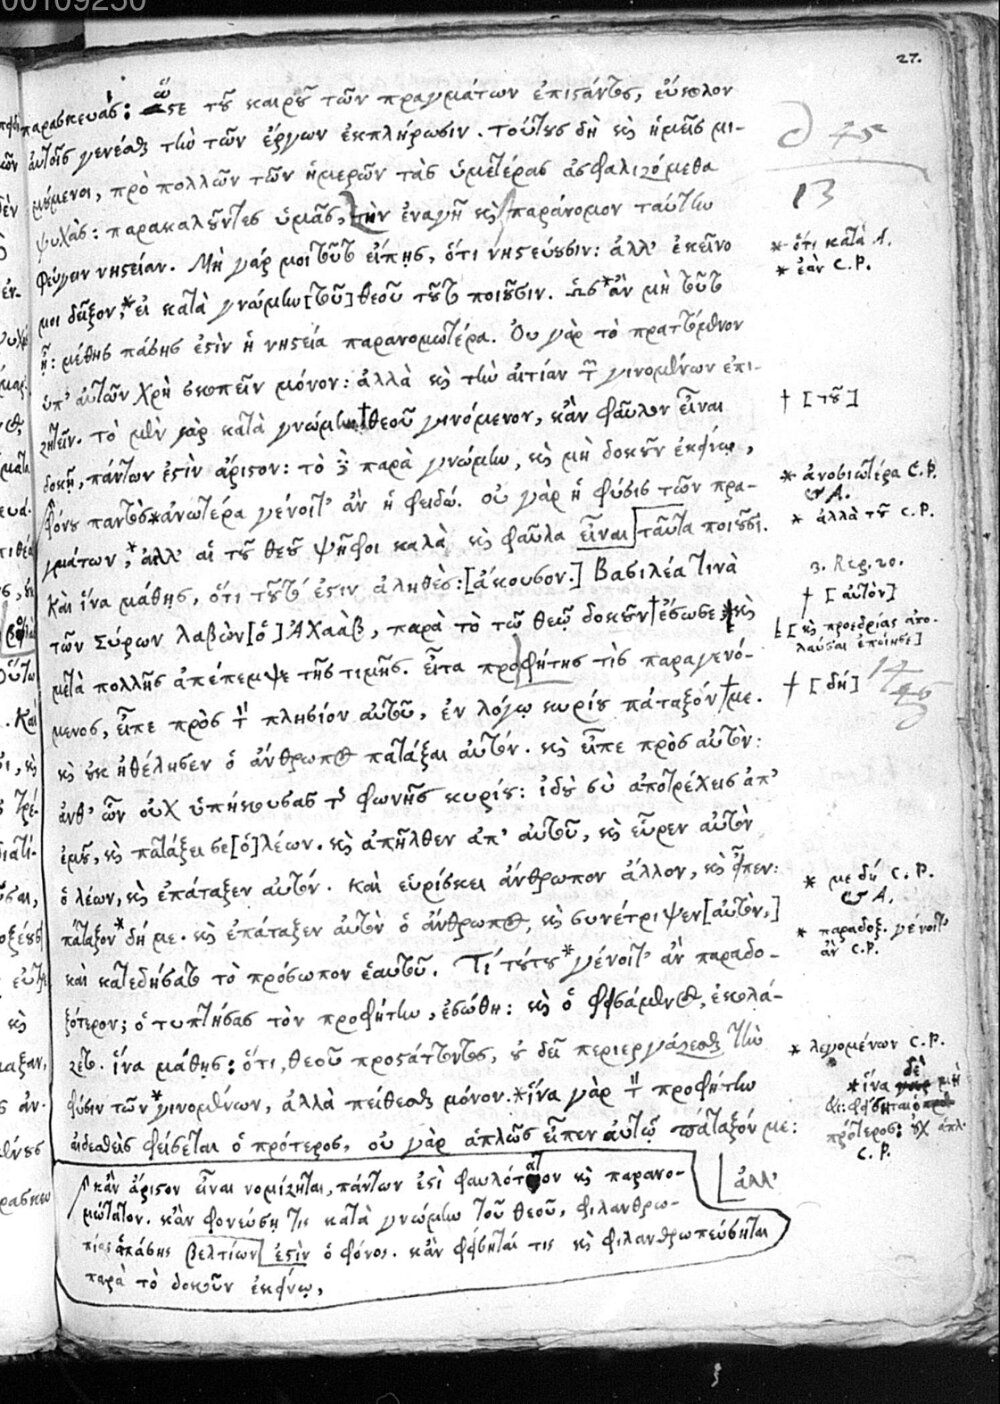 00109250
27.
παρασκευάς: ὥστε τοῦ καιροῦ τῶν πραγμάτων ἐπιστάντος, εὔκολον
αὐτοῖς γενέσθαι τὴν τῶν ἔργων ἐκπλήρωσιν. τούτους δὴ καὶ ἡμεῖς μι-
μούμενοι, πρὸ πολλῶν τῶν ἡμερῶν τὰς ὑμετέρας ἀσφαλιζόμεθα
ψυχὰς: παρακαλοῦντες ὑμᾶς, τὴν ἐναγῆ καὶ παράνομον ταύτην
φεύγειν νηστείαν. Μὴ γάρ μοι τοῦτο εἴπῃς, ὅτι νηστεύουσιν: ἀλλ' ἐκεῖνο
μοι δεῖξον, * εἰ κατὰ γνώμην [τοῦ] θεοῦ τοῦτο ποιοῦσιν. Ὡς * ἂν μὴ τοῦτο
ᾖ: μέθης πάσης ἐστὶν ἡ νηστεία παρανομωτέρα. Οὐ γὰρ τὸ πραττόμενον
ὑπ' αὐτῶν χρὴ σκοπεῖν μόνον: ἀλλὰ καὶ τὴν αἰτίαν τῶν γινομένων ἐπι-
ζητεῖν. τὸ μὲν γὰρ κατὰ γνώμην † θεοῦ γινόμενον, κἂν φαῦλον εἶναι
δοκῇ, πάντων ἐστὶν ἄριστον: τὸ δὲ παρὰ γνώμην, καὶ μὴ δοκοῦν ἐκείνῳ,
φόνου παντὸς * ἀνωτέρα γένοιτ' ἂν ἡ φειδώ. οὐ γὰρ ἡ φύσις τῶν πρα-
γμάτων, * ἀλλ' αἱ τοῦ θεοῦ ψῆφοι καλὰ καὶ φαῦλα εἶναι ταῦτα ποιοῦσι.
Καὶ ἵνα μάθῃς, ὅτι τοῦτό ἐστιν ἀληθὲς: [ἄκουσον.] Βασιλέα τινὰ
τῶν Σύρων λαβὼν [ὁ] Ἀχαὰβ, παρὰ τὸ τῷ θεῷ δοκοῦν † ἔσωσε, καὶ
μετὰ πολλῆς ἀπέπεμψε τῆς τιμῆς. εἶτα προφήτης τὶς παραγενό-
μενος, εἶπε πρὸς τὸν πλησίον αὐτοῦ, ἐν λόγῳ κυρίου πάταξόν † με.
καὶ οὐκ ἠθέλησεν ὁ ἄνθρωπος πατάξαι αὐτόν. καὶ εἶπε πρὸς αὐτὸν:
ἀνθ' ὧν οὐχ ὑπήκουσας τῆς φωνῆς κυρίου: ἰδοὺ σὺ ἀποτρέχεις ἀπ'
ἐμοῦ, καὶ πατάξει σε [ὁ] λέων. καὶ ἀπῆλθεν ἀπ' αὐτοῦ, καὶ εὗρεν αὐτὸν
ὁ λέων, καὶ ἐπάταξεν αὐτόν. καὶ εὑρίσκει ἄνθρωπον ἄλλον, καὶ εἶπεν:
πάταξον * δή με. καὶ ἐπάταξεν αὐτὸν ὁ ἄνθρωπος, καὶ συνέτριψεν [αὐτὸν,]
καὶ κατεδήσατο τὸ πρόσωπον ἑαυτοῦ. Τί τούτου * γένοιτ' ἂν παραδο-
ξότερον; ὁ τυπτήσας τὸν προφήτην, ἐσώθη: καὶ ὁ φεισάμενος, ἐκολά-
ζετο. ἵνα μάθῃς: ὅτι, θεοῦ προστάττοντος, οὐ δεῖ περιεργάζεσθαι τὴν
φύσιν τῶν * γινομένων, ἀλλὰ πείθεσθαι μόνον. * ἵνα γὰρ τὸν προφήτην
αἰδεσθεὶς φείσεται ὁ πρότερος, οὐ γὰρ ἁπλῶς εἶπεν αὐτῷ πάταξόν με:
κἂν ἄριστον εἶναι νομίζηται, πάντων ἐστὶ φαυλότατον καὶ παρανο-
μώτατον. κἂν φονεύσῃ τις κατὰ γνώμην τοῦ θεοῦ, φιλανθρω-
πίας ἁπάσης βελτίων ἐστὶν ὁ φόνος. κἂν φείσηταί τις καὶ φιλανθρωπεύσηται
παρὰ τὸ δοκοῦν ἐκείνῳ,
∂ 45
13
* ὅτι κατὰ A.
* ἐὰν C.P.
† [τοῦ]
* ἀνοσιωτέρα C.P.
A.
* ἀλλὰ τοῦ C.P.
3. Reg. 20.
† [αὐτὸν]
[καὶ προεδρίας ἀπο-
λαῦσαι ἐποίησε]
† [δή]
* με δή C.P.
A.
* παραδοξ. γένοιτ'
ἂν C.P.
* λεγομένων C.P.
* ἵνα δὲ μὴ
πρότερος: οὐχ ἁπλ.
C.P.
ἀλλ'